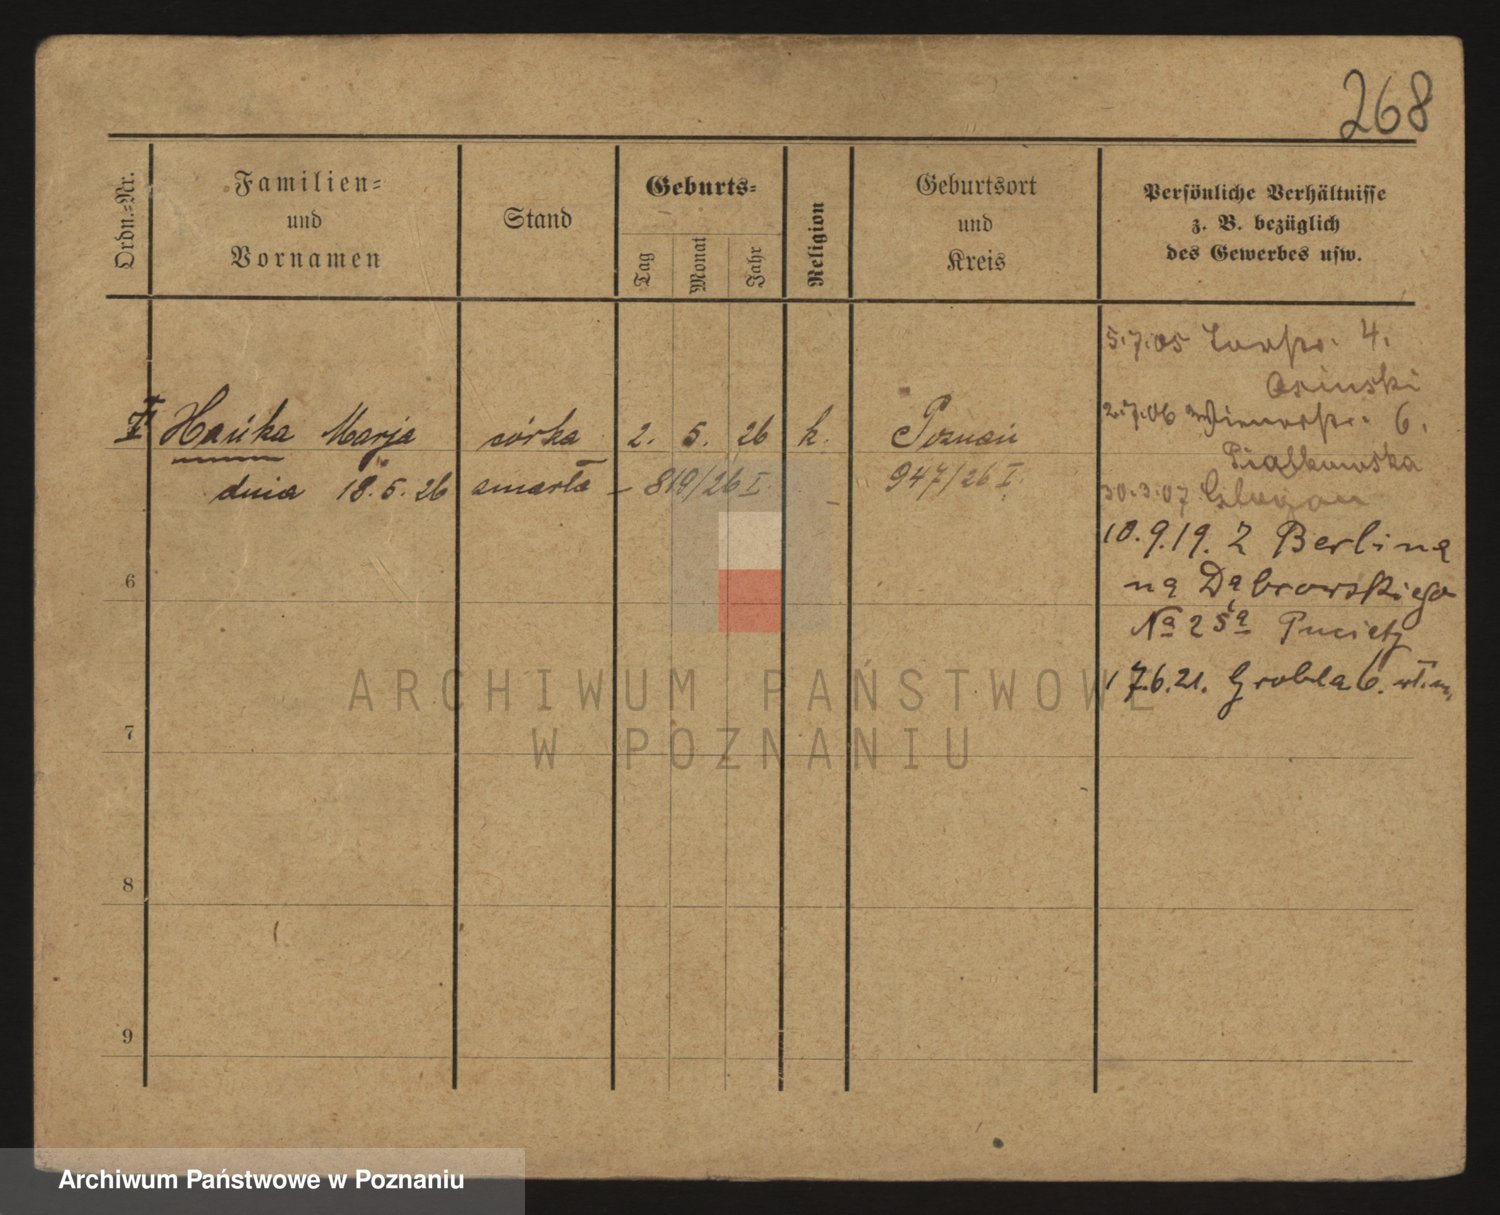 268
Ordn.-Nr.
Familien-
und
Vornamen
Stand
Geburts-
Tag
Monat
Jahr
Religion
Geburtsort
und
Kreis
Persönliche Verhältnisse
z. B. bezüglich
des Gewerbes usw.
Hańka Marja córka 2. 5. 26 k. Poznań
dnia 18.5.26 zmarła – 819/26 I 947/26 I
5.7.05 4.
Osinski
2.7.06 Wienerstr. 6.
Pialkowska
30.3.07 Glogau
10.9.19. Z Berlina
na Dąbrowskiego
No 2
17.6.21. Grobla 6.
6
7
8
9
ARCHIWUM PAŃSTWOWE
W POZNANIU
Archiwum Państwowe w Poznaniu